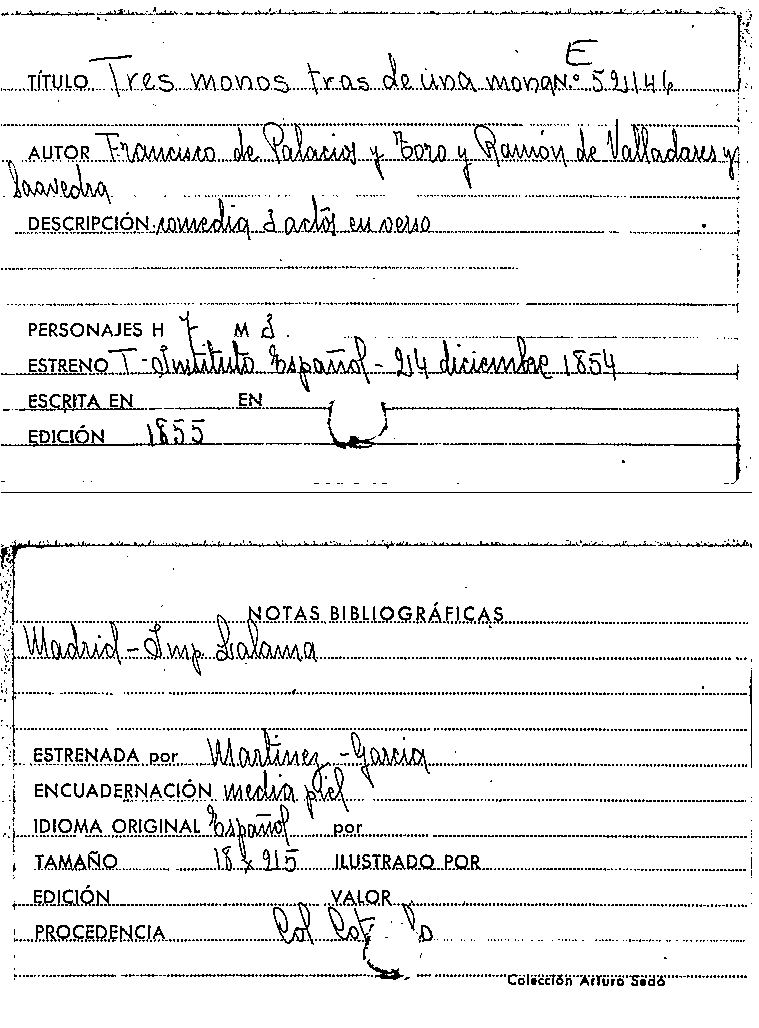 E
TÍTULO Tres monos tras de una mona N.º
AUTOR Francisco de Palacios y Toro y Ramón de Valladares y
Saavedra
DESCRIPCIÓN comedia 3 actos en verso
PERSONAJES H 7 M 3
ESTRENO T-Instituto Español - 24 diciembre 1854
ESCRITA EN EN
EDICIÓN 1855
NOTAS BIBLIOGRÁFICAS
Madrid - Imp Lalama
ESTRENADA por Martinez - Garcia
ENCUADERNACIÓN media piel
IDIOMA ORIGINAL Español por
TAMAÑO 18 x ILUSTRADO POR
EDICIÓN VALOR
PROCEDENCIA Col Cot lo
Colección Arturo Sedó